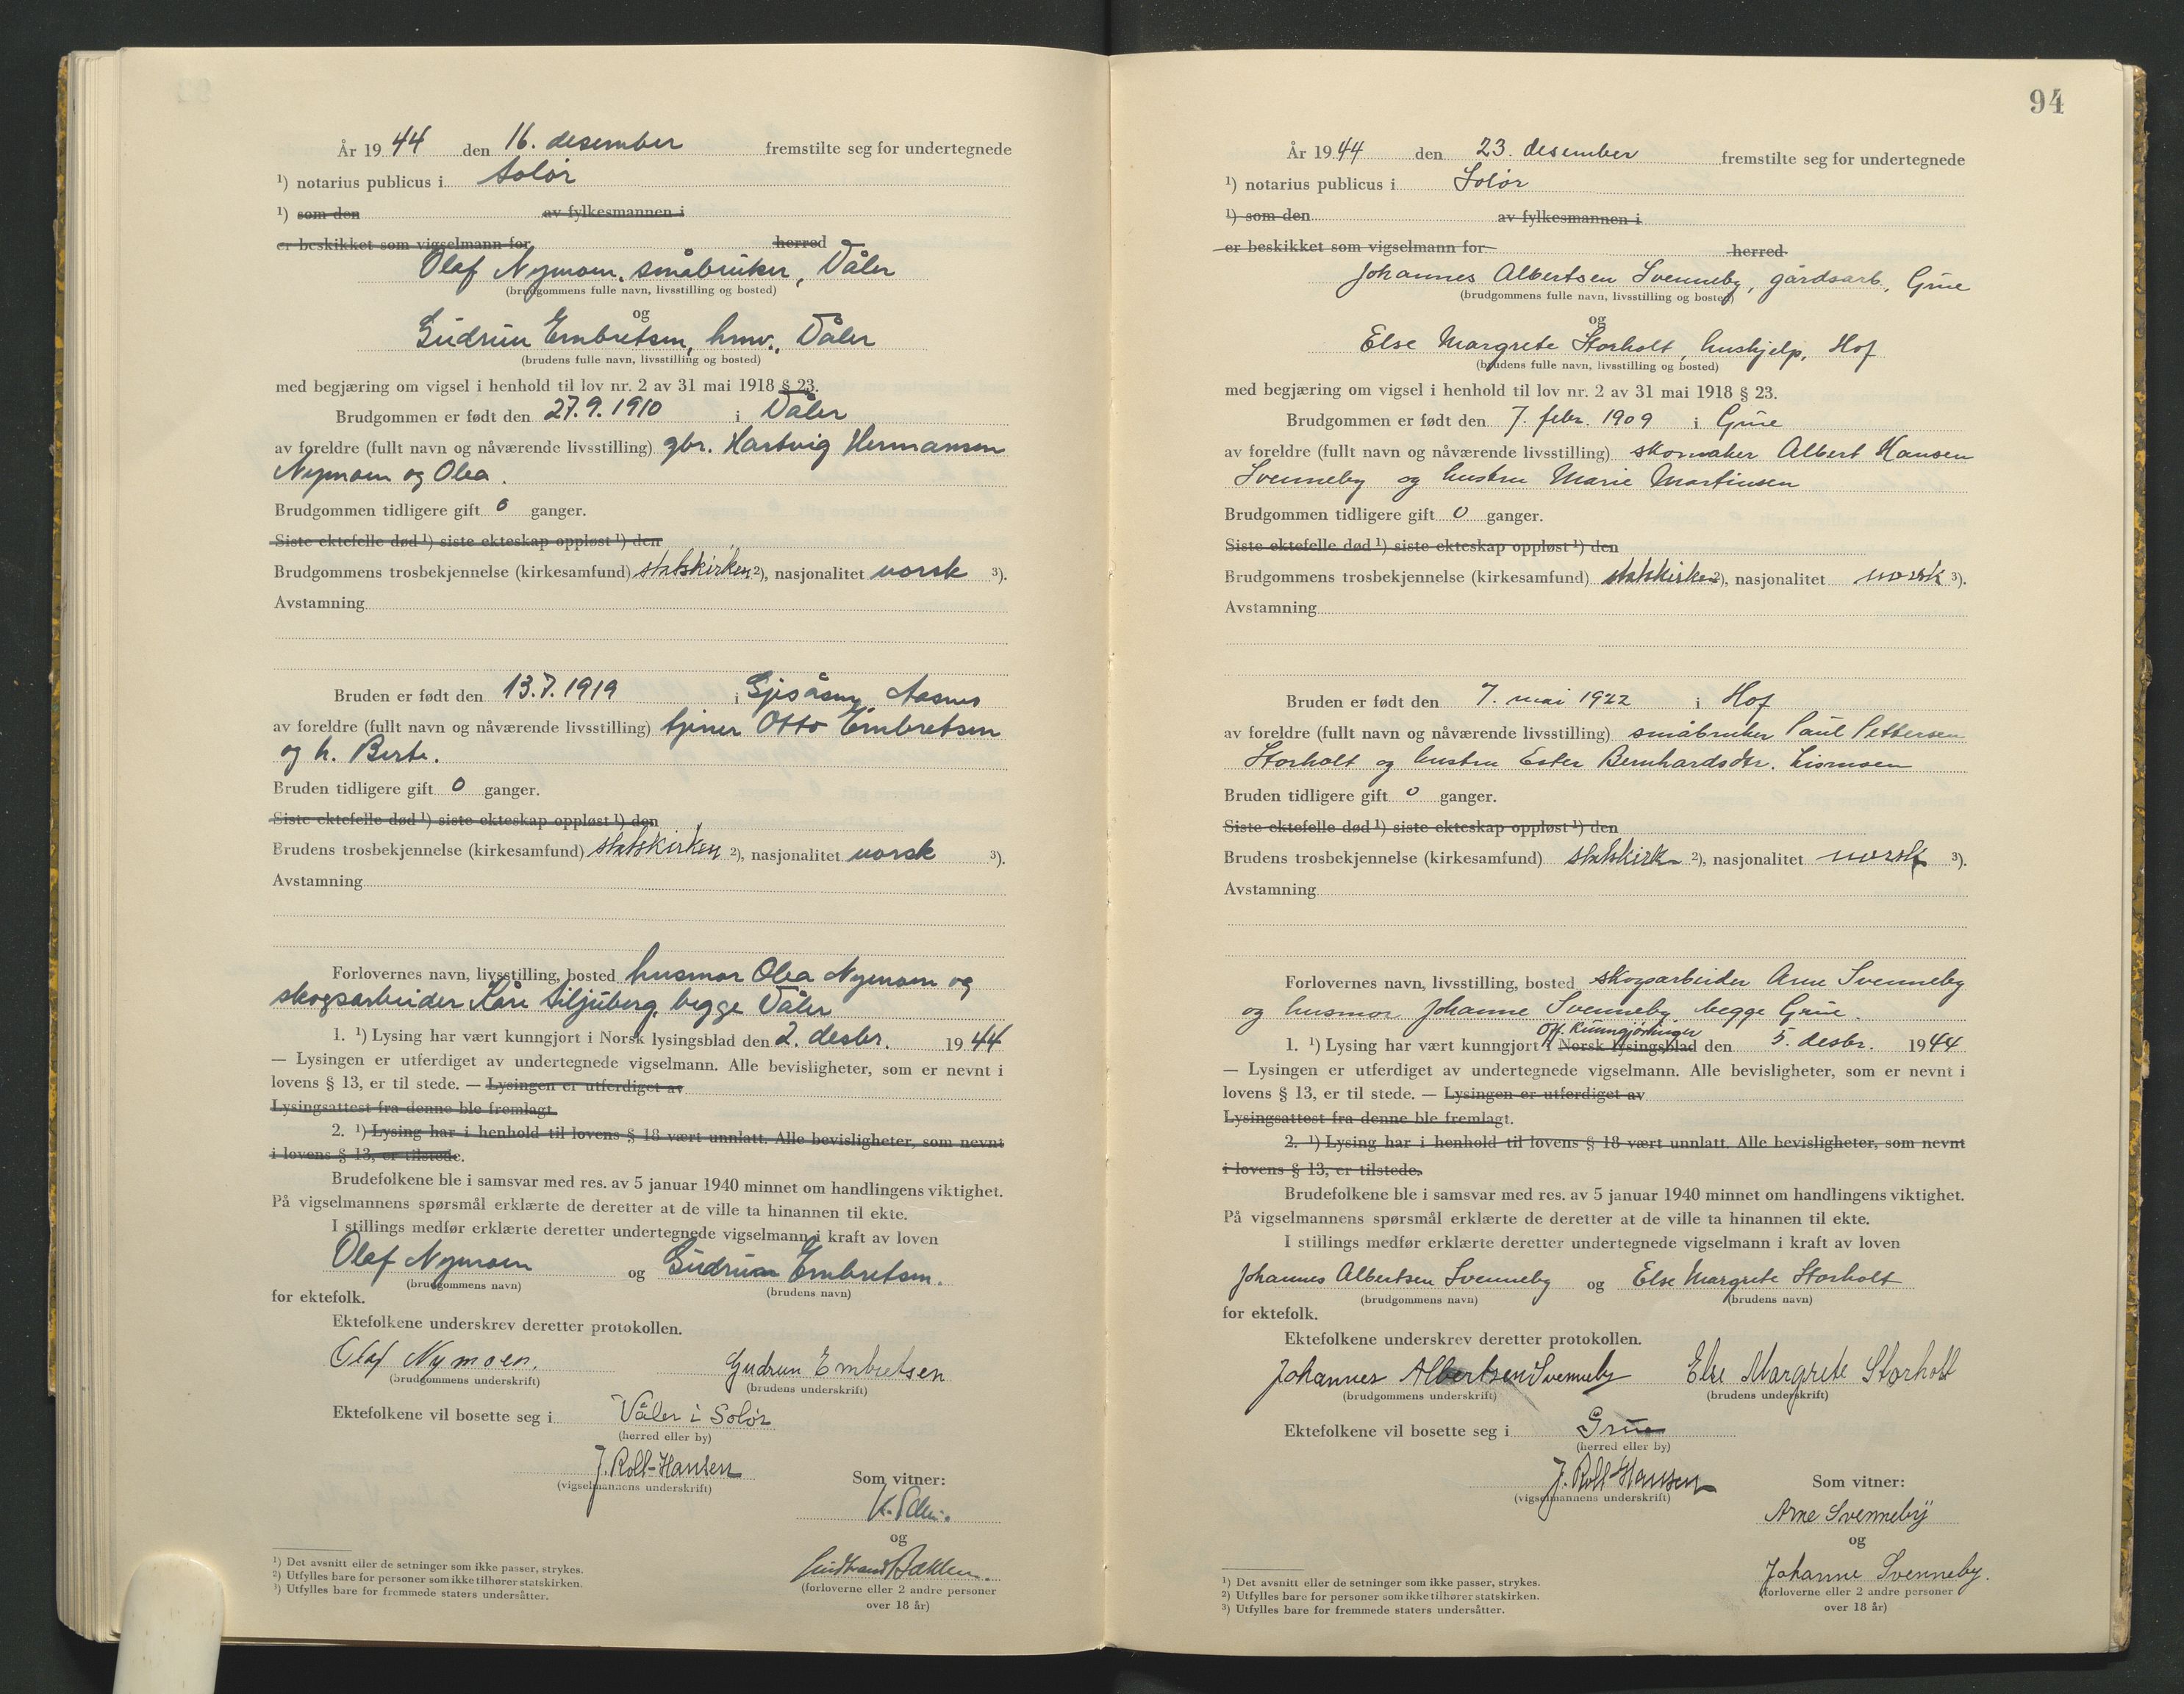 År 19 44 den 16. desember fremstilte seg for undertegnede
¹) notarius publicus i Solør
¹) som den av fylkesmannen i
er beskikket som vigselmann for herred
Olaf Nymoen, småbruker, Våler
(brudgommens fulle navn, livsstilling og bosted)
og
Gudrun Embretsen, hmv., Våler
(brudens fulle navn, livsstilling og bosted)
med begjæring om vigsel i henhold til lov nr. 2 av 31 mai 1918 § 23.
Brudgommen er født den 27.9.1910 i Våler
av foreldre (fullt navn og nåværende livsstilling) gbr. Hartvig Hermansen
Nymoen og Olea.
Brudgommen tidligere gift 0 ganger.
Siste ektefelle død ¹) siste ekteskap oppløst ¹) den
Brudgommens trosbekjennelse (kirkesamfund) statskirken ²), nasjonalitet norsk ³).
Avstamning
Bruden er født den 13.7.1919 i Gjesåsen, Aasnes
av foreldre (fullt navn og nåværende livsstilling) tjener Otto Embretsen
og h. Berte.
Bruden tidligere gift 0 ganger.
Siste ektefelle død ¹) siste ekteskap oppløst ¹) den
Brudens trosbekjennelse (kirkesamfund) statskirken ²), nasjonalitet norsk ³).
Avstamning
Forlovernes navn, livsstilling, bosted husmor Olea Nymoen og
skogsarbeider Kåre Siljuberg, begge Våler
1. ¹) Lysing har vært kunngjort i Norsk lysingsblad den 2. desbr. 19 44
— Lysingen er utferdiget av undertegnede vigselmann. Alle bevisligheter, som er nevnt i
lovens § 13, er til stede. — Lysingen er utferdiget av
Lysingsattest fra denne ble fremlagt.
2. ¹) Lysing har i henhold til lovens § 18 vært unnlatt. Alle bevisligheter, som nevnt
i lovens § 13, er tilstede.
Brudefolkene ble i samsvar med res. av 5 januar 1940 minnet om handlingens viktighet.
På vigselmannens spørsmål erklærte de deretter at de ville ta hinannen til ekte.
I stillings medfør erklærte deretter undertegnede vigselmann i kraft av loven
Olaf Nymoen og Gudrun Embretsen.
(brudgommens navn) (brudens navn)
for ektefolk.
Ektefolkene underskrev deretter protokollen.
Olaf Nymoen. Gudrun Embretsen
(brudgommens underskrift) (brudens underskrift)
Ektefolkene vil bosette seg i Våler i Solør
(herred eller by)
J. Roll-Hansen
(vigselmannens underskrift)
Som vitner:
og
(forloverne eller 2 andre personer
over 18 år)
¹) Det avsnitt eller de setninger som ikke passer, strykes.
²) Utfylles bare for personer som ikke tilhører statskirken.
³) Utfylles bare for fremmede staters undersåtter.
94
År 19 44 den 23. desember fremstilte seg for undertegnede
¹) notarius publicus i Solør
¹) som den av fylkesmannen i
er beskikket som vigselmann for herred
Johannes Albertsen Svenneby, gårdsarb., Grue
(brudgommens fulle navn, livsstilling og bosted)
og
Else Margrete Storholt, hushjelp, Hof
(brudens fulle navn, livsstilling og bosted)
med begjæring om vigsel i henhold til lov nr. 2 av 31 mai 1918 § 23.
Brudgommen er født den 7. febr. 1909 i Grue
av foreldre (fullt navn og nåværende livsstilling) skomaker Albert Hansen
Svenneby og hustru Marie Martinsen
Brudgommen tidligere gift 0 ganger.
Siste ektefelle død ¹) siste ekteskap oppløst ¹) den
Brudgommens trosbekjennelse (kirkesamfund) statskirken ²), nasjonalitet norsk ³).
Avstamning
Bruden er født den 7. mai 1922 i Hof
av foreldre (fullt navn og nåværende livsstilling) småbruker Paul Pettersen
Storholt og hustru Ester Bernhardsdtr.
Bruden tidligere gift 0 ganger.
Siste ektefelle død ¹) siste ekteskap oppløst ¹) den
Brudens trosbekjennelse (kirkesamfund) statskirk ²), nasjonalitet norsk ³).
Avstamning
Forlovernes navn, livsstilling, bosted skogsarbeider Arne Svenneby
og husmor Johanne Svenneby begge Grue.
Off. Kunngjøringer
1. ¹) Lysing har vært kunngjort i Norsk lysingsblad den 5. desbr. 19 44
— Lysingen er utferdiget av undertegnede vigselmann. Alle bevisligheter, som er nevnt i
lovens § 13, er til stede. — Lysingen er utferdiget av
Lysingsattest fra denne ble fremlagt.
2. ¹) Lysing har i henhold til lovens § 18 vært unnlatt. Alle bevisligheter, som nevnt
i lovens § 13, er tilstede.
Brudefolkene ble i samsvar med res. av 5 januar 1940 minnet om handlingens viktighet.
På vigselmannens spørsmål erklærte de deretter at de ville ta hinannen til ekte.
I stillings medfør erklærte deretter undertegnede vigselmann i kraft av loven
Johannes Albertsen Svenneby og Else Margrete Storholt
(brudgommens navn) (brudens navn)
for ektefolk.
Ektefolkene underskrev deretter protokollen.
Johannes Albertsen Svenneby Else Margrete Storholt
(brudgommens underskrift) (brudens underskrift)
Ektefolkene vil bosette seg i Grue
(herred eller by)
J. Roll-Hansen
(vigselmannens underskrift)
Som vitner:
Arne Svenneby
og
Johanne Svenneby.
(forloverne eller 2 andre personer
over 18 år)
¹) Det avsnitt eller de setninger som ikke passer, strykes.
²) Utfylles bare for personer som ikke tilhører statskirken.
³) Utfylles bare for fremmede staters undersåtter.